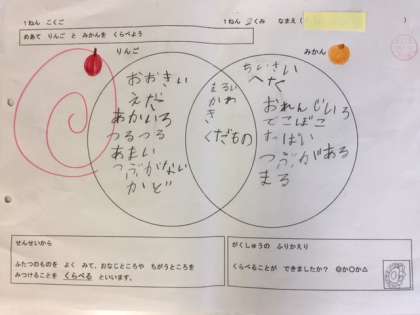 1ねん こくご
1ねん 2くみ なまえ( )
めあて りんご と みかんを くらべよう
りんご
みかん
おおきい
えだ
あかいろ
つるつる
あまい
つぶがない
かど
まるい
かわ
き
くだもの
ちいさい
へた
おれんじいろ
でこぼこ
すっぱい
つぶがある
まる
せんせいから
ふたつのものを よく みて、おなじところや ちがうところを
みつけることを くらべる といいます。
がくしゅうの ふりかえり
くらべることが できましたか? ◎か○か△